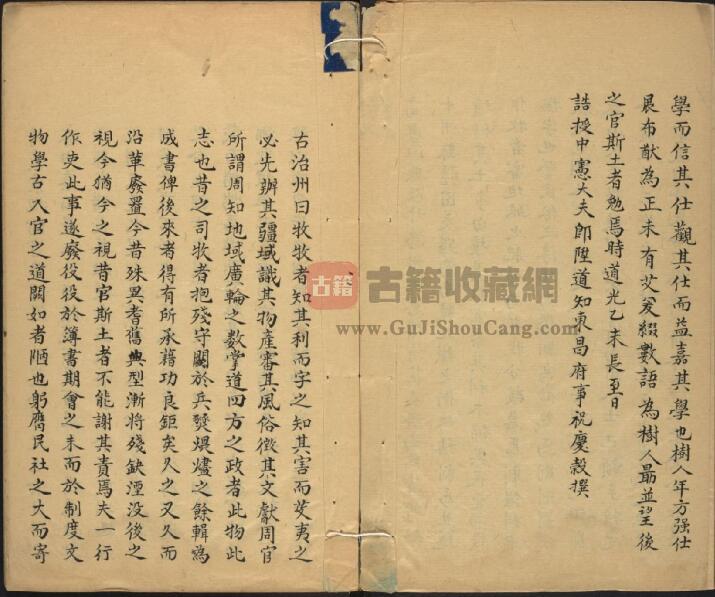 學而信其仕觀其仕而益嘉其學也樹人年方强仕
展布猷為正未有艾爰綴數語為樹人勗並望後
之官斯土者勉焉時道光乙未長至日
誥授中憲大夫即陞道知東昌府事祝慶穀撰
古治州曰牧牧者知其利而字之知其害而芟夷之
必先辦其疆域識其物產審其風俗徵其文獻周官
所謂周知地域廣輪之數掌道四方之政者此物此
志也昔之司牧者抱殘守闕於兵燹煨燼之餘輯為
成書俾後來者得有所承藉功良鉅矣久之又久而
沿革廢置今昔殊異耆舊典型漸將殘缺湮没後之
視今猶今之視昔官斯土者不能謝其責焉夫一行
作吏此事遂廢役役於簿書期會之末而於制度文
物學古入官之道闕如者陋也躬膺民社之大而寄
古籍
古籍收藏网
www.GuJiShouCang.com